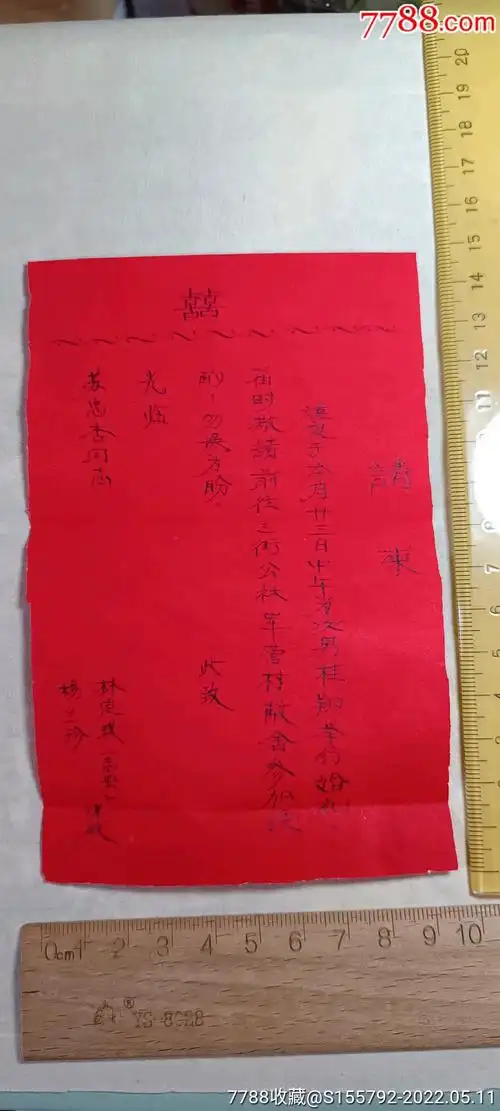 7788.com
囍
請柬
谨定于本月廿三日中午为次男桂翔举行婚礼
届时敬請前往三街公社军营村敝舍参加
酌!勿误为盼。
此致
光临
苏忠杏同志
林
杨兰珍
0cm 1 2 3 4 5 6 7 8 9 10
YS-8028
1 2 3 4 5 6 7 8 9 10 11 12 13 14 15 16 17 18 19 20
7788收藏@S155792-2022.05.11